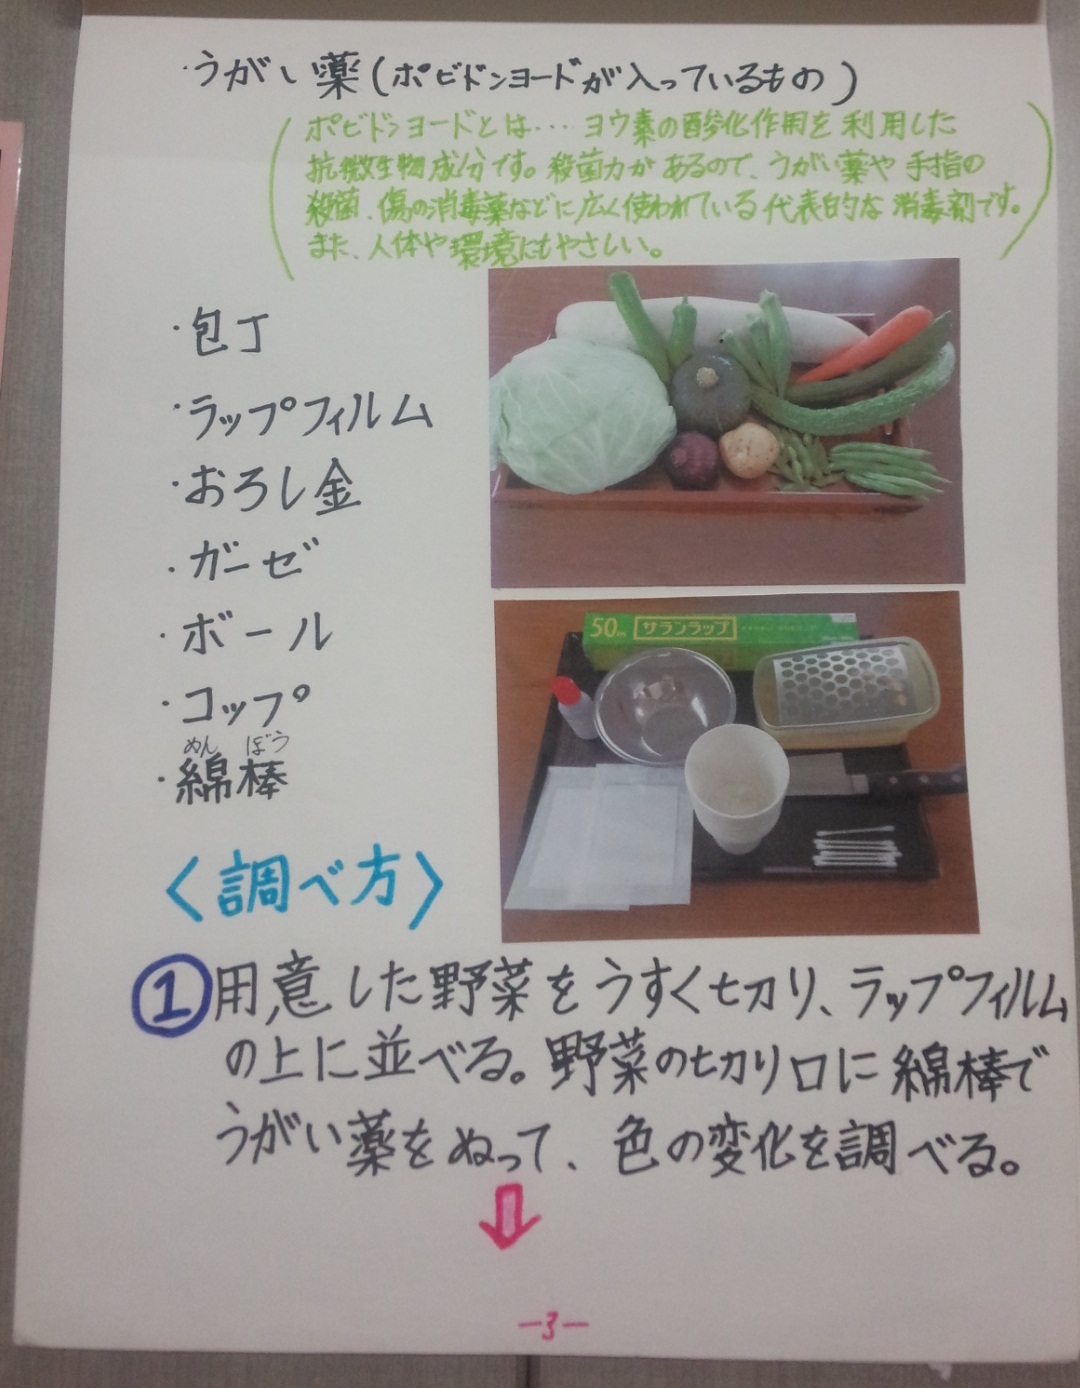 ・うがい薬(ポビドンヨードが入っているもの)
(ポビドンヨードとは…ヨウ素の酸化作用を利用した
抗微生物成分です。殺菌力があるので、うがい薬や手指の
殺菌、傷の消毒薬などに広く使われている代表的な消毒剤です。
また、人体や環境にもやさしい。)
・包丁
・ラップフィルム
・おろし金
・ガーゼ
・ボール
・コップ
めんぼう
・綿棒
50m サランラップ
〈調べ方〉
①用意した野菜をうすく切り、ラップフィルム
の上に並べる。野菜の切り口に綿棒で
うがい薬をぬって、色の変化を調べる。
⇩
-3-